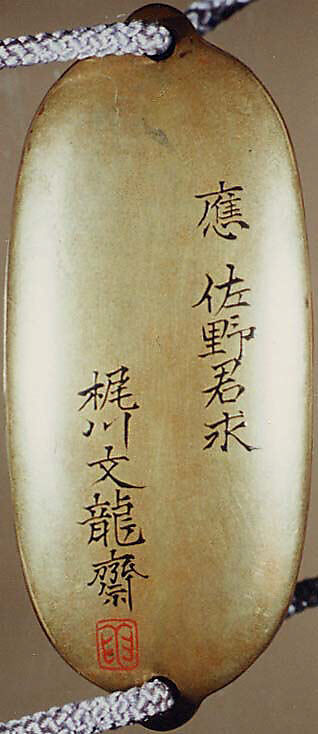 應 佐野君求
梶川文龍齋